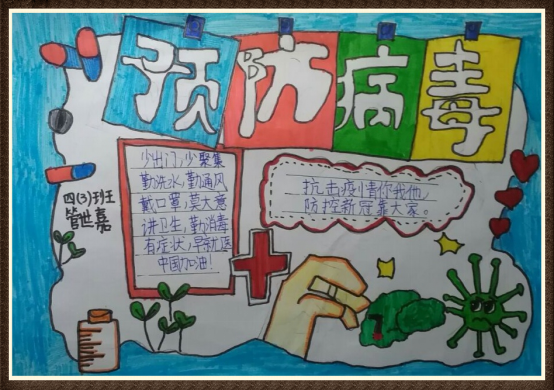 预防病毒
少出门,少聚集
勤洗水,勤通风
戴口罩,莫大意
讲卫生,勤消毒
有症状,早就医
中国加油!
抗击疫情你我他,
防控新冠靠大家。
四(3)班
管世嘉